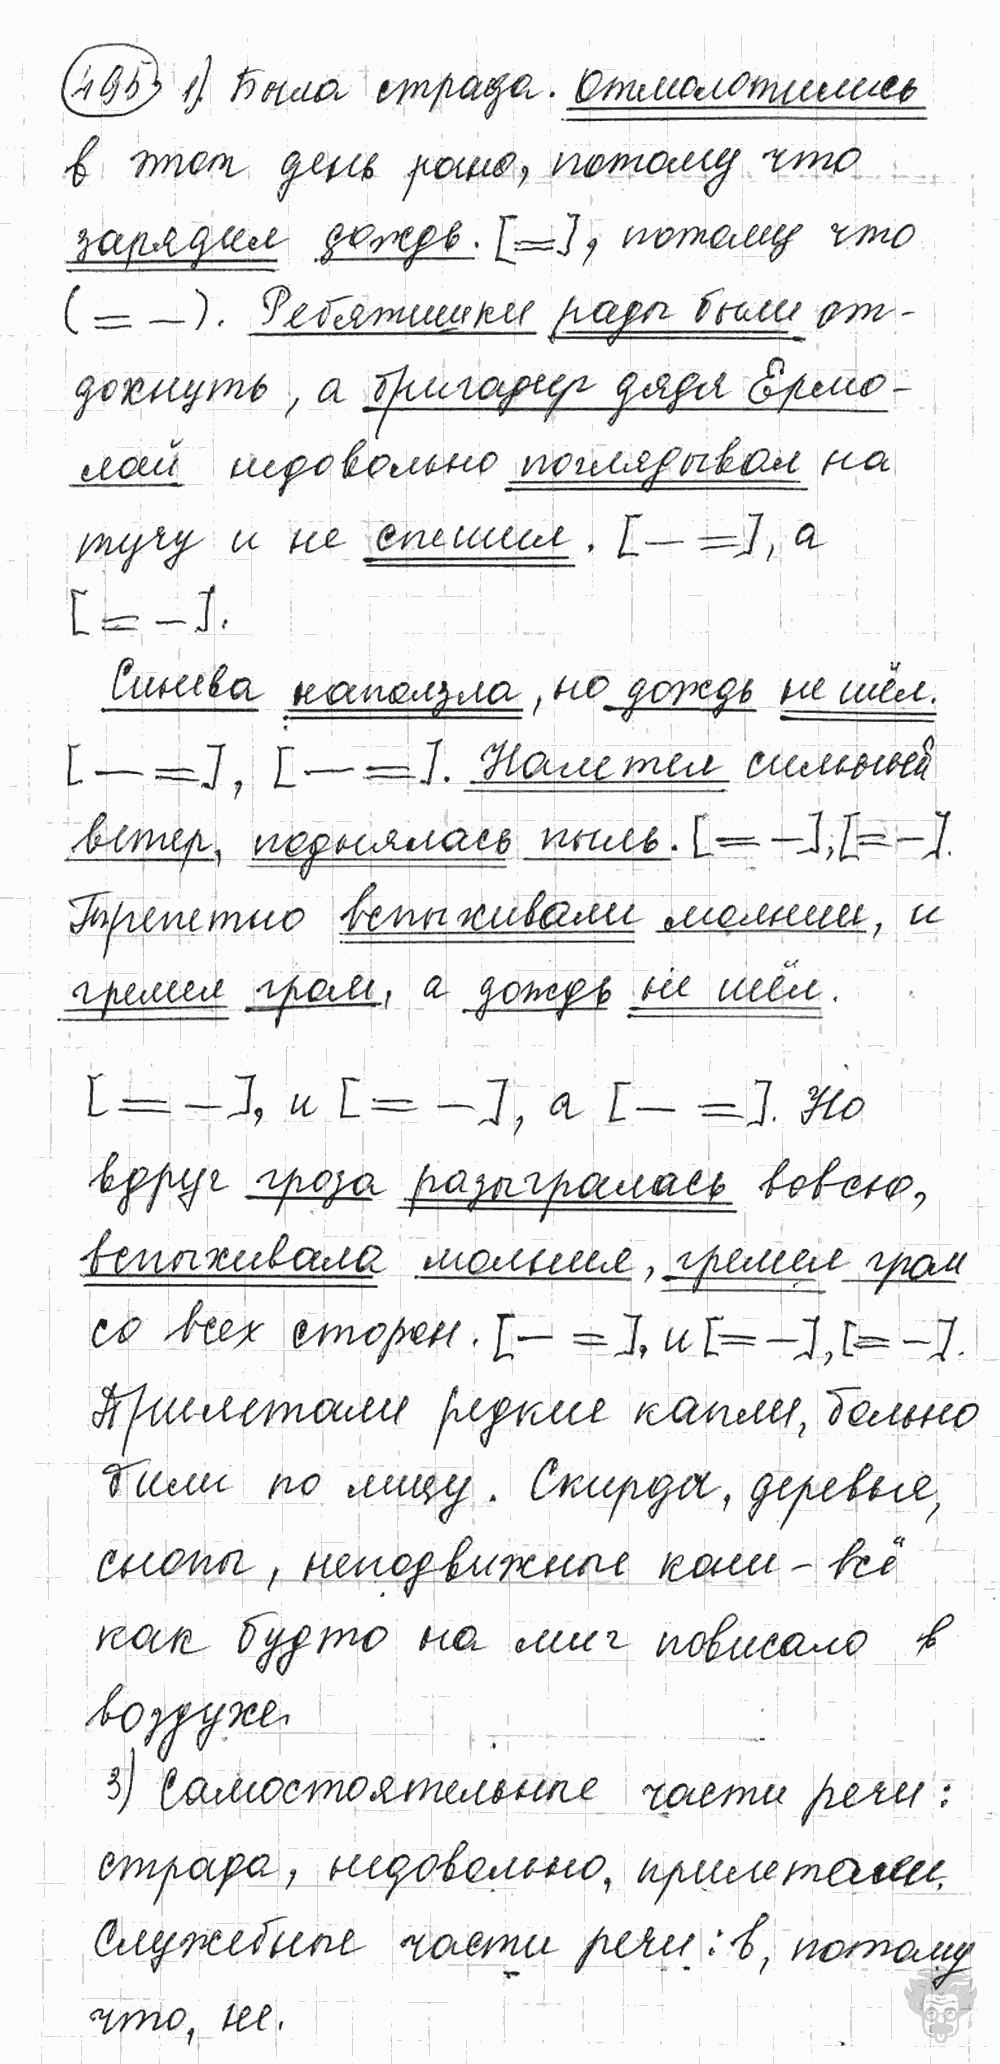 495. 1). Была страда. Отмолотились
в этот день рано, потому что
зарядил дождь. [=], потому что
(= –). Ребятишки рады были от-
дохнуть, а бригадир дядя Ермо-
лай недовольно поглядывал на
тучу и не спешил. [– =], а
[= –].
Синева наползла, но дождь не шёл.
[– =], [– =]. Налетел сильный
ветер, поднялась пыль. [= –], [= –].
Трепетно вспыхивали молнии, и
гремел гром, а дождь не шёл.
[= –], и [= –], а [– =]. Но
вдруг гроза разыгралась вовсю,
вспыхивала молния, гремел гром
со всех сторон. [– =], и [= –], [= –].
Прилетали редкие капли, больно
били по лицу. Скирда, деревья,
снопы, неподвижные кони – всё
как будто на миг повисало в
воздухе.
3) Самостоятельные части речи:
страда, недовольно, прилетали.
Служебные части речи: в, потому
что, не.